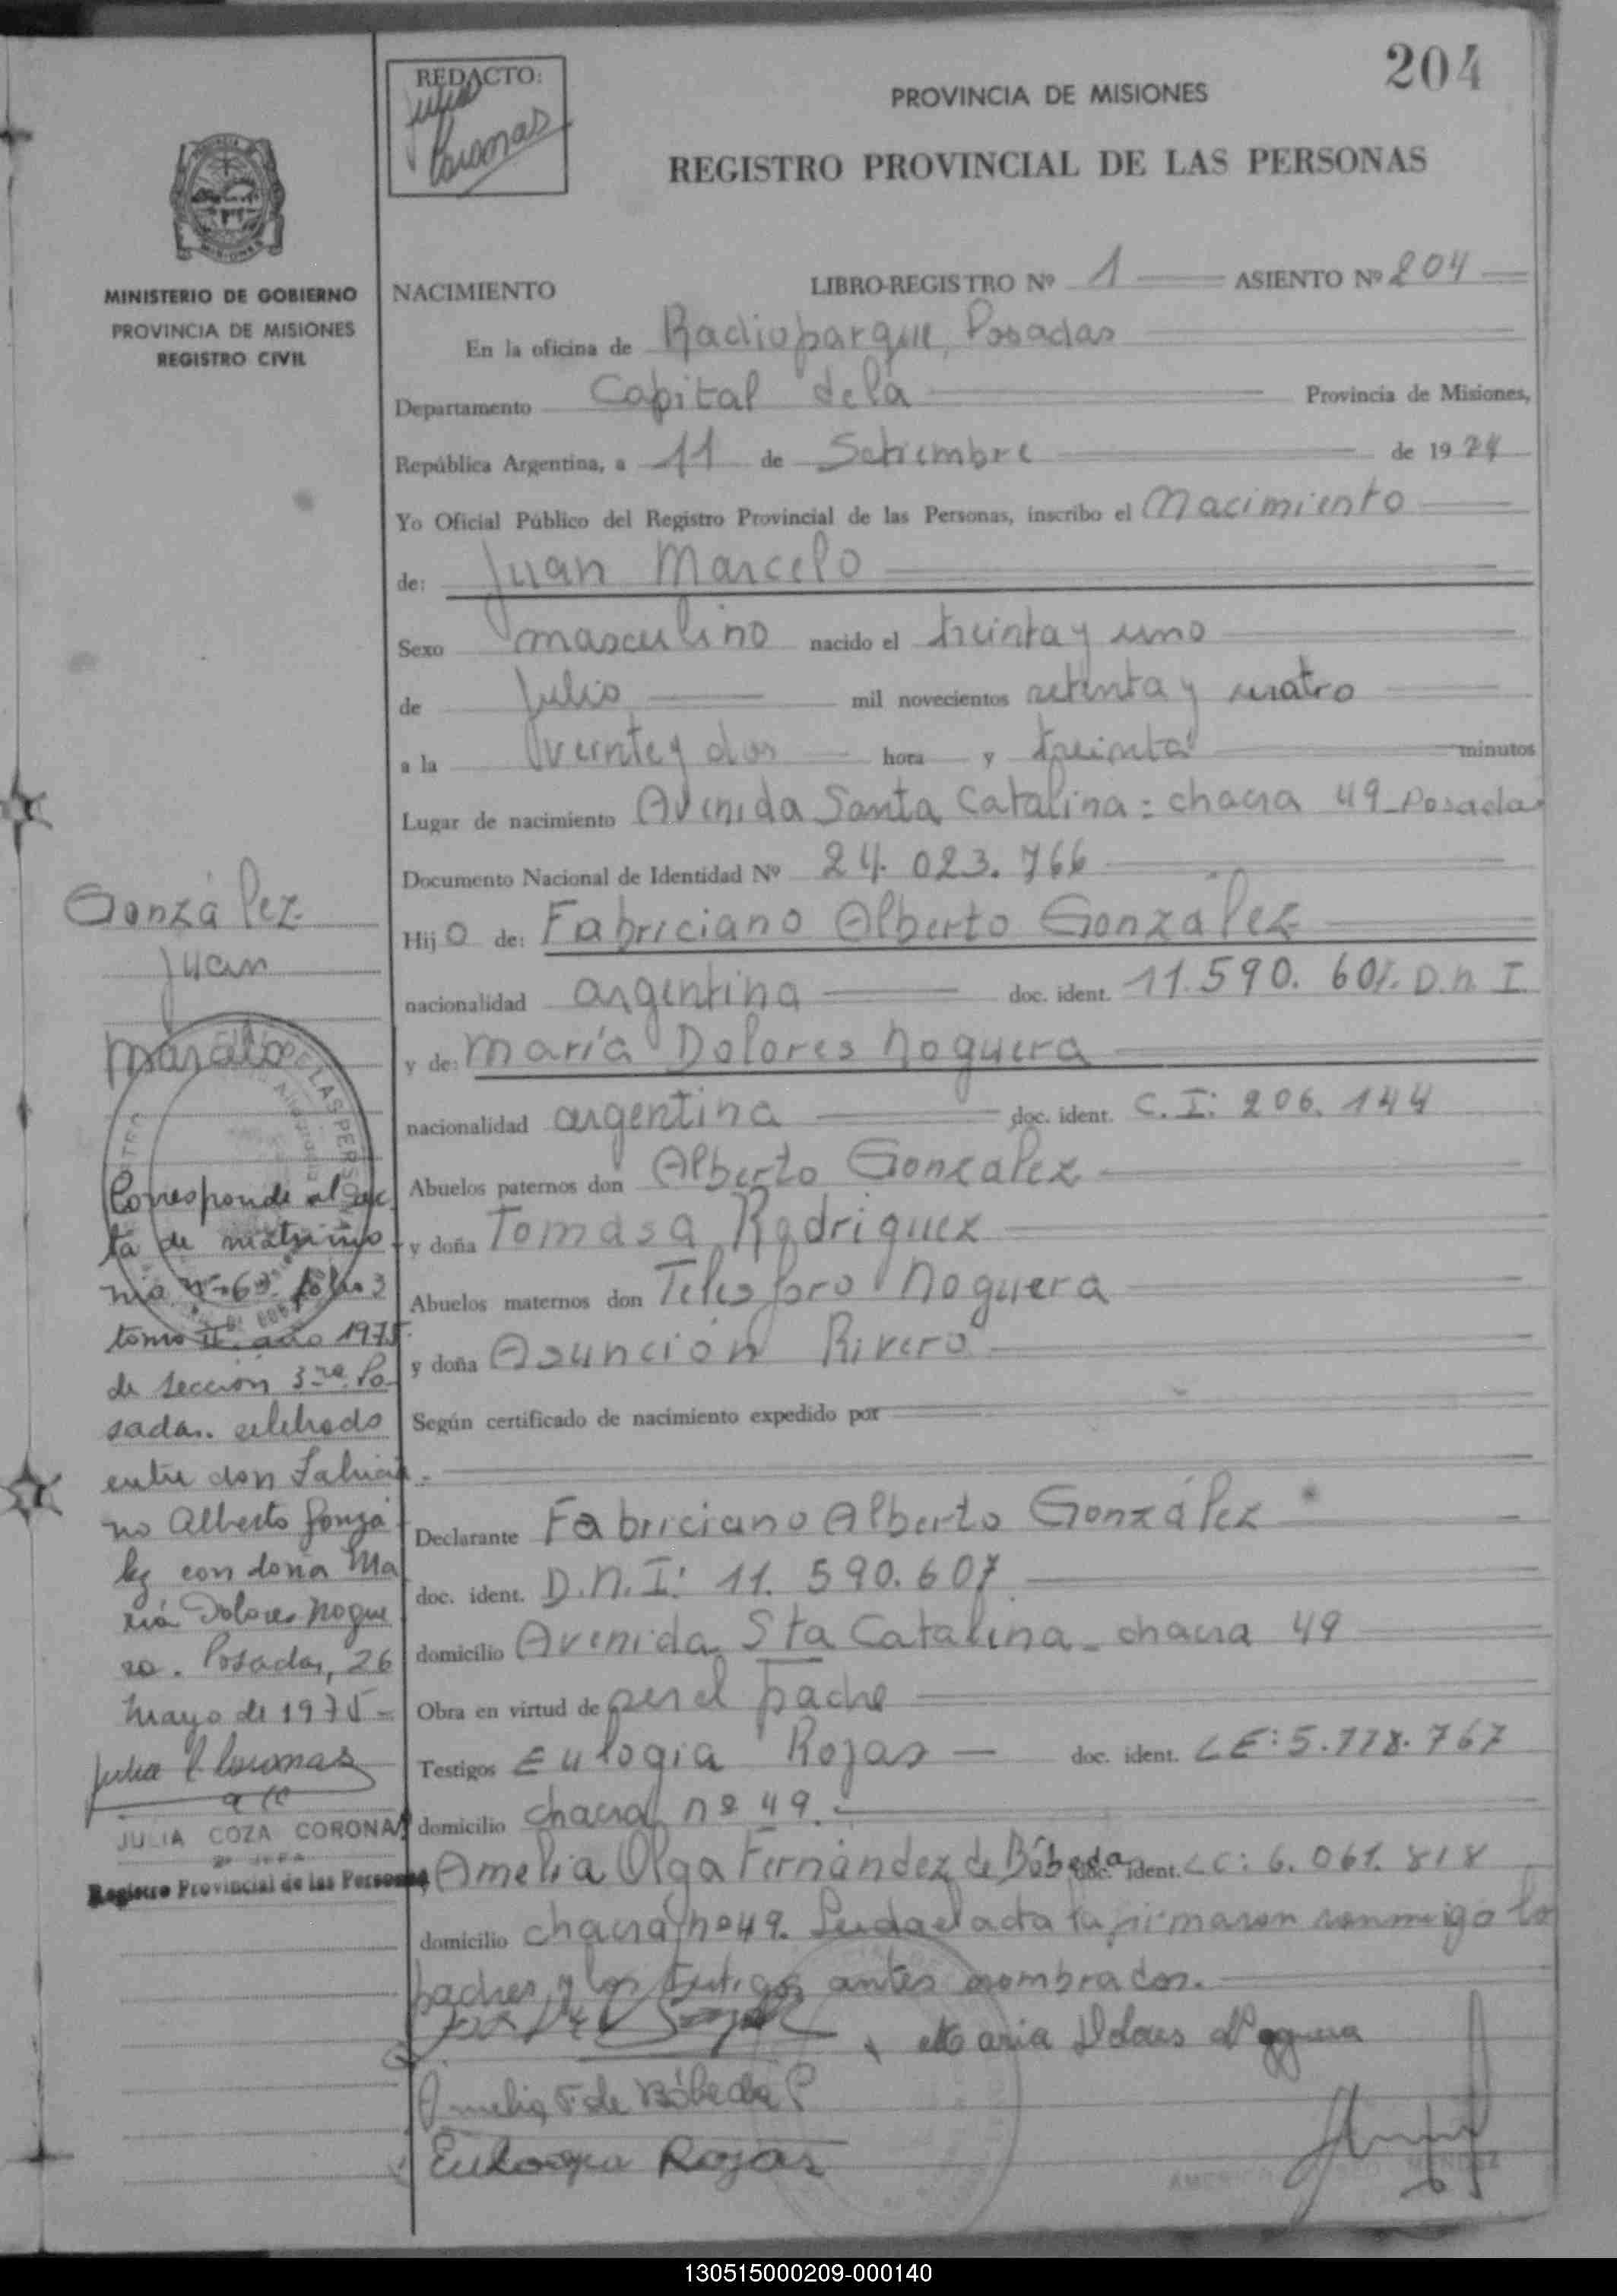 204
REDACTO:
Julia
Coronas
PROVINCIA DE MISIONES
REGISTRO PROVINCIAL DE LAS PERSONAS
MINISTERIO DE GOBIERNO
PROVINCIA DE MISIONES
REGISTRO CIVIL
NACIMIENTO LIBRO-REGISTRO Nº 1 ASIENTO Nº 204
En la oficina de Radioparque, Posadas
Departamento Capital de la Provincia de Misiones,
República Argentina, a 11 de Setiembre de 1974
Yo Oficial Público del Registro Provincial de las Personas, inscribo el Nacimiento
de: Juan Marcelo
Sexo masculino nacido el treinta y uno
de Julio mil novecientos setenta y cuatro
a la veinte y dos hora y treinta minutos
Lugar de nacimiento Avenida Santa Catalina = chacra 49 - Posadas
Documento Nacional de Identidad Nº 24.023.766
Hijo de: Fabriciano Alberto González
nacionalidad argentina doc. ident. 11.590.607. D.N.I.
y de: María Dolores Noguera
nacionalidad argentina doc. ident. C.I: 206.144
Abuelos paternos don Alberto Gonzalez
y doña Tomasa Rodriguez
Abuelos maternos don Telesforo Noguera
y doña Asunción Rivero
Según certificado de nacimiento expedido por
Declarante Fabriciano Alberto González
doc. ident. D.N.I: 11.590.607
domicilio Avenida Sta Catalina - chacra 49
Obra en virtud de ser el padre
Testigos Eulogia Rojas doc. ident. LE: 5.778.767
domicilio chacra nº 49.
Amelia Olga Fernández de Bóbeda doc. ident. LC: 6.061.818
domicilio chacra nº 49. Leida el acta la firmaron conmigo los
padres y los testigos antes nombrados.
Maria Dolores Noguera
Amelia F de Bóbeda
Eulogia Rojas
González
Juan
Marcelo
Corresponde al ac
ta de matrimo
nio Nº 69. folio 3
tomo II año 1975
de sección 3ra. Po
sadas. celebrado
entre don Fabricia
no Alberto Gonzá
lez con doña Ma
ría Dolores Nogue
ra. Posadas, 26
Mayo de 1975 -
Julia C Coronas
JULIA COZA CORONAS
Registro Provincial de las Personas
130515000209-000140